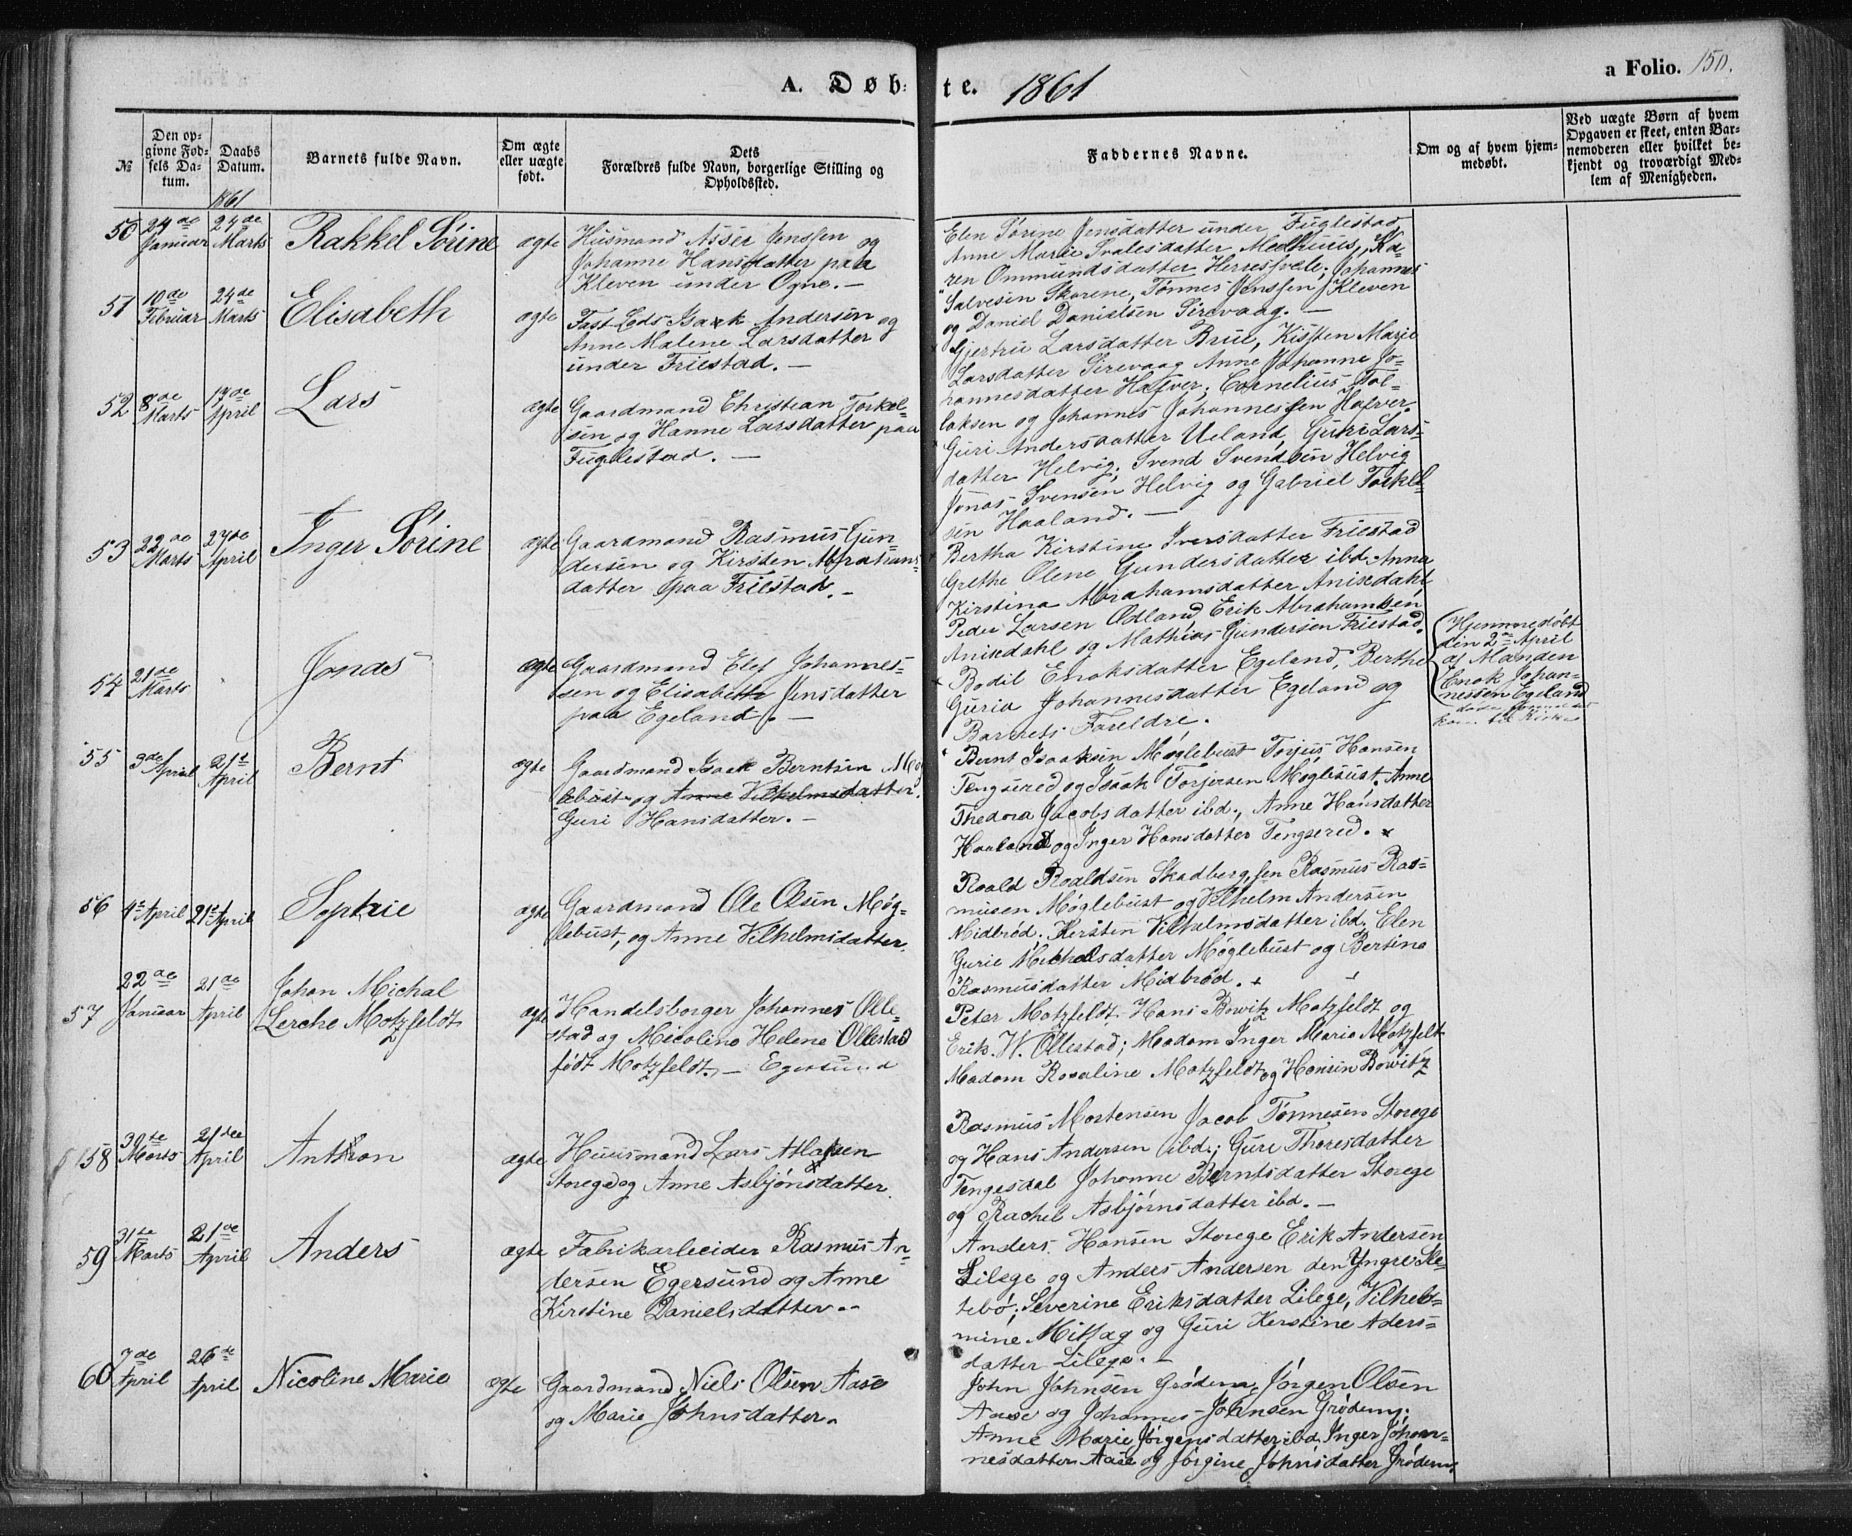 A. Døb-
te. 1861
a Folio. 150.
№
Den op-
givne Fød-
sels Da-
tum.
Daabs
Datum.
1861
Barnets fulde Navn.
Om ægte
eller uægte
født.
Dets
Forældres fulde Navn, borgerlige Stilling og
Opholdssted.
Faddernes Navne.
Om og af hvem hjem-
medøbt.
Ved uægte Børn af hvem
Opgaven er skeet, enten Bar-
nemoderen eller hvilket be-
kjendt og troværdigt Med-
lem af Menigheden.
50
24de
Januar
24de
Marts
Rakkel Sørine
ægte
Huusmand Asser Jenssen og
Johanne Hansdatter paa
Kleven under Ogne. —
Elen Sørine Jensdatter under Fuglestad
Anne Marie Svalesdatter Medhuus, Ka-
ren Ommundsdatter Herresvele; Johannes
Salvesen Skarene, Tønnes Jenssen Kleven
og Daniel Danielsen Sirevaag. —
51
10de
Februar
24de
Marts
Elisabeth
ægte
Fast Eds Isaak Andersen og
Anne Malene Larsdatter
under Friestad. —
Gjertru Larsdatter Brui, Kissten Marie
Larsdatter Sirevaag Anne Johanne Jo-
hannesdatter Hafver; Cornelius Tol-
laksen og Johannes Johannessen Hafver.
52
8de
Marts
17de
April
Lars
ægte
Gaardmand Christian Torkel-
sen og Hanne Larsdatter paa
Fuglestad. —
Guri Andersdatter Ueland, Guri Lars-
datter Helvig; Svend Svendsen Helvig
Jonas Svensen Helvig og Gabriel Torkel-
sen Haaland. —
53
22de
Marts
27de
April
Inger Sørine
ægte
Gaardmand Rasmus Gun-
dersen og Kirsten Abrahams-
datter paa Friestad. —
Bertha Kirstine Iversdatter Friestad
Grethe Olene Gundersdatter ibd. Anna
Kirstina Abrahamsdatter Anisdahl,
Peder Larsen Odland, Erik Abrahamsen
Anisdahl og Mathias Gundersen Friestad.
54
21de
Marts
Jonas
ægte
Gaardmand Elef Johannes-
sen og Elisabeth Jensdatter
paa Egeland. —
Bodil Enoksdatter Egeland, Berthe
Guria Johannesdatter Egeland og
Barnets Foreldre.
Hjemmedøbt
den 2de April
af Manden
Enok Johan-
nessen Egeland
døde
kom til Kirke
55
3de April
21de
April
Bernt
ægte
Gaardmand Isaak Berntsen Møg-
lebust og Anne Vilhelmsdatter
Guri Hansdatter. —
Bernt Isaaksen Møglebust Torjus Hansen
Tengsered og Isaak Torjersen Møglebust. Anne
Thedora Jacobsdatter ibd., Anne Hansdatter
Haaland og Inger Hansdatter Tengsered.
56
4de April
21de April
Sophie
ægte
Gaardmand Ole Olsen Møg-
lebust, og Anne Vilhelmsdatter.
Roald Roaldsen Skadberg, sen Rasmus Ras-
musen Møglebust og Vilhelm Andersen
Midbrød. Kersten Vilhelmsdatter ibd; Elen
Gurie Michelsdatter Møglebust og Bertine
Rasmusdatter Midbrød.
57
22de
Januar
21de
April
Johan Michal
Lerche Motzfeldt
ægte
Handelsborger Johannes Olle-
stad og Nicoline Helene Ollestad
født Motzfeldt. — Egersund
Peter Motzfeldt, Hans Bowitz Motzfeldt og
Erik. W. Ollestad; Madam Inger Maria Motzfelt
Madam Rosaline Motzfeldt og Hansin Bowitz
58
30te
Marts
21de
April
Anthon
ægte
Huusmand Lars Atlaksen
Storege og Anne Asbjønsdatter.
Rasmus Mortensen Jacob Tønnesen Storege
og Hans Andersen ibd; Guri Thoresdatter
Tengesdal Johanne Berntsdatter Storege
og Rachel Asbjørnsdatter ibd. —
59
31te
Marts
21de
April
Anders
ægte
Fabrikarbeider Rasmus An-
dersen Egersund og Anne
Kirstine Danielsdatter. —
Anders Hansen Storege Erik Andersen
Lilege og Anders Andersen den Yngre Sle-
tebø; Severine Eriksdatter Lilege, Vilhel-
mine Mittag og Guri Kerstine Aders-
datter Lilege. —
60
7de
April
26de
April
Nicoline Marie
ægte
Gaardmand Niels Olsen Aase
og Marie Johnsdatter.
John Johnsen Grødem, Jørgen Olsen
Aase og Johannes Johnsen Grødem;
Anne Marie Jørgensdatter ibd, Inger Johan-
nesdatter Aase og Jørgine Johnsdatter Grødem.